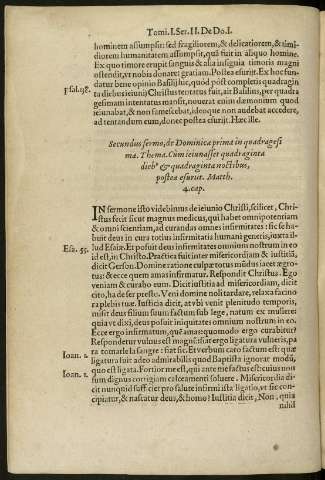 Tomi. I. Ser. II. De Do. I.
hominem assumpsit: sed fragiliorem, & delicatiorem, & timi-
diorem humanitatem assumpsit, quā fuit in aliquo homine.
Ex quo timore erupit sanguis & alia insignia timoris magni
ostendit, vt nobis donaret gratiam. Postea esurijt. Ex hoc fun-
Psal. 98.
datur bene opinio Basilij, quòd pòst completis quadragin
ta diebus ieiunij Christus tentatus fuit, ait Basilius, per quadra
gesimam intentatus mansit, nouerat enim dæmonium quod
ieiunabat, & non famescebat, ideoque non audebat accedere,
ad tentandum eum, donec postea esurijt. Hæc ille.
Secundus sermo, de Dominica prima in quadragesi
ma. Thema. Cum ieiunasset quadraginta
dieb' & quadraginta noctibus,
postea esurijt. Matth.
4. cap.
IN sermone isto videbimus de ieiunio Christi, scilicet, Chri-
stus fecit sicut magnus medicus, qui habet omnipotentiam
& omni scientiam, ad curandas omnes infirmitates: sic se ha-
buit deus in cura totius infirmitatis humani generis, iuxta il-
Esa. 53.
lud Esaiæ. Et posuit deus infirmitates omnium nostrum in eo
id est, in Christo. Practica fuit inter misericordiam & iustitiā,
dicit Gerson. Domine ratione culpæ totus mūdus iacet ægro-
tus: & ecce quem amas infirmatur. Respondit Christus. Ego
veniam & curabo eum. Dicit iustitia ad misericordiam, dicit
cito, ha de ser presto. Veni domine noli tardare, relaxa facino
ra plebis tuæ. Iustitia dicit, at vbi venit plenitudo temporis,
misit deus filium suum factum sub lege, natum ex muliere:
quia vt dixi, deus posuit iniquitates omnium nostrum in eo.
Ecce ergo infirmatur, quē amas: quomodo ergo curabitur?
Respondetur vulnus est magnū: stat ergo ligatura vulneris, pa
Ioan. 1.
ra tomarle la sangre: fiat sic. Et verbum caro factum est: quæ
ligatura fuit adeo admirabilis quod Baptista ignorat modū,
quo est ligata. Fortior me est, qui ante me factus est cuius non
Ioan. 1.
sum dignus corrigiam calceamenti soluere. Misericordia di-
cit nunquid sufficiet pro salute infirmi ista ligatio, vt sic con-
cipiatur, & nascatur deus, & homo? Iustitia dicit, Non, quia
nihil